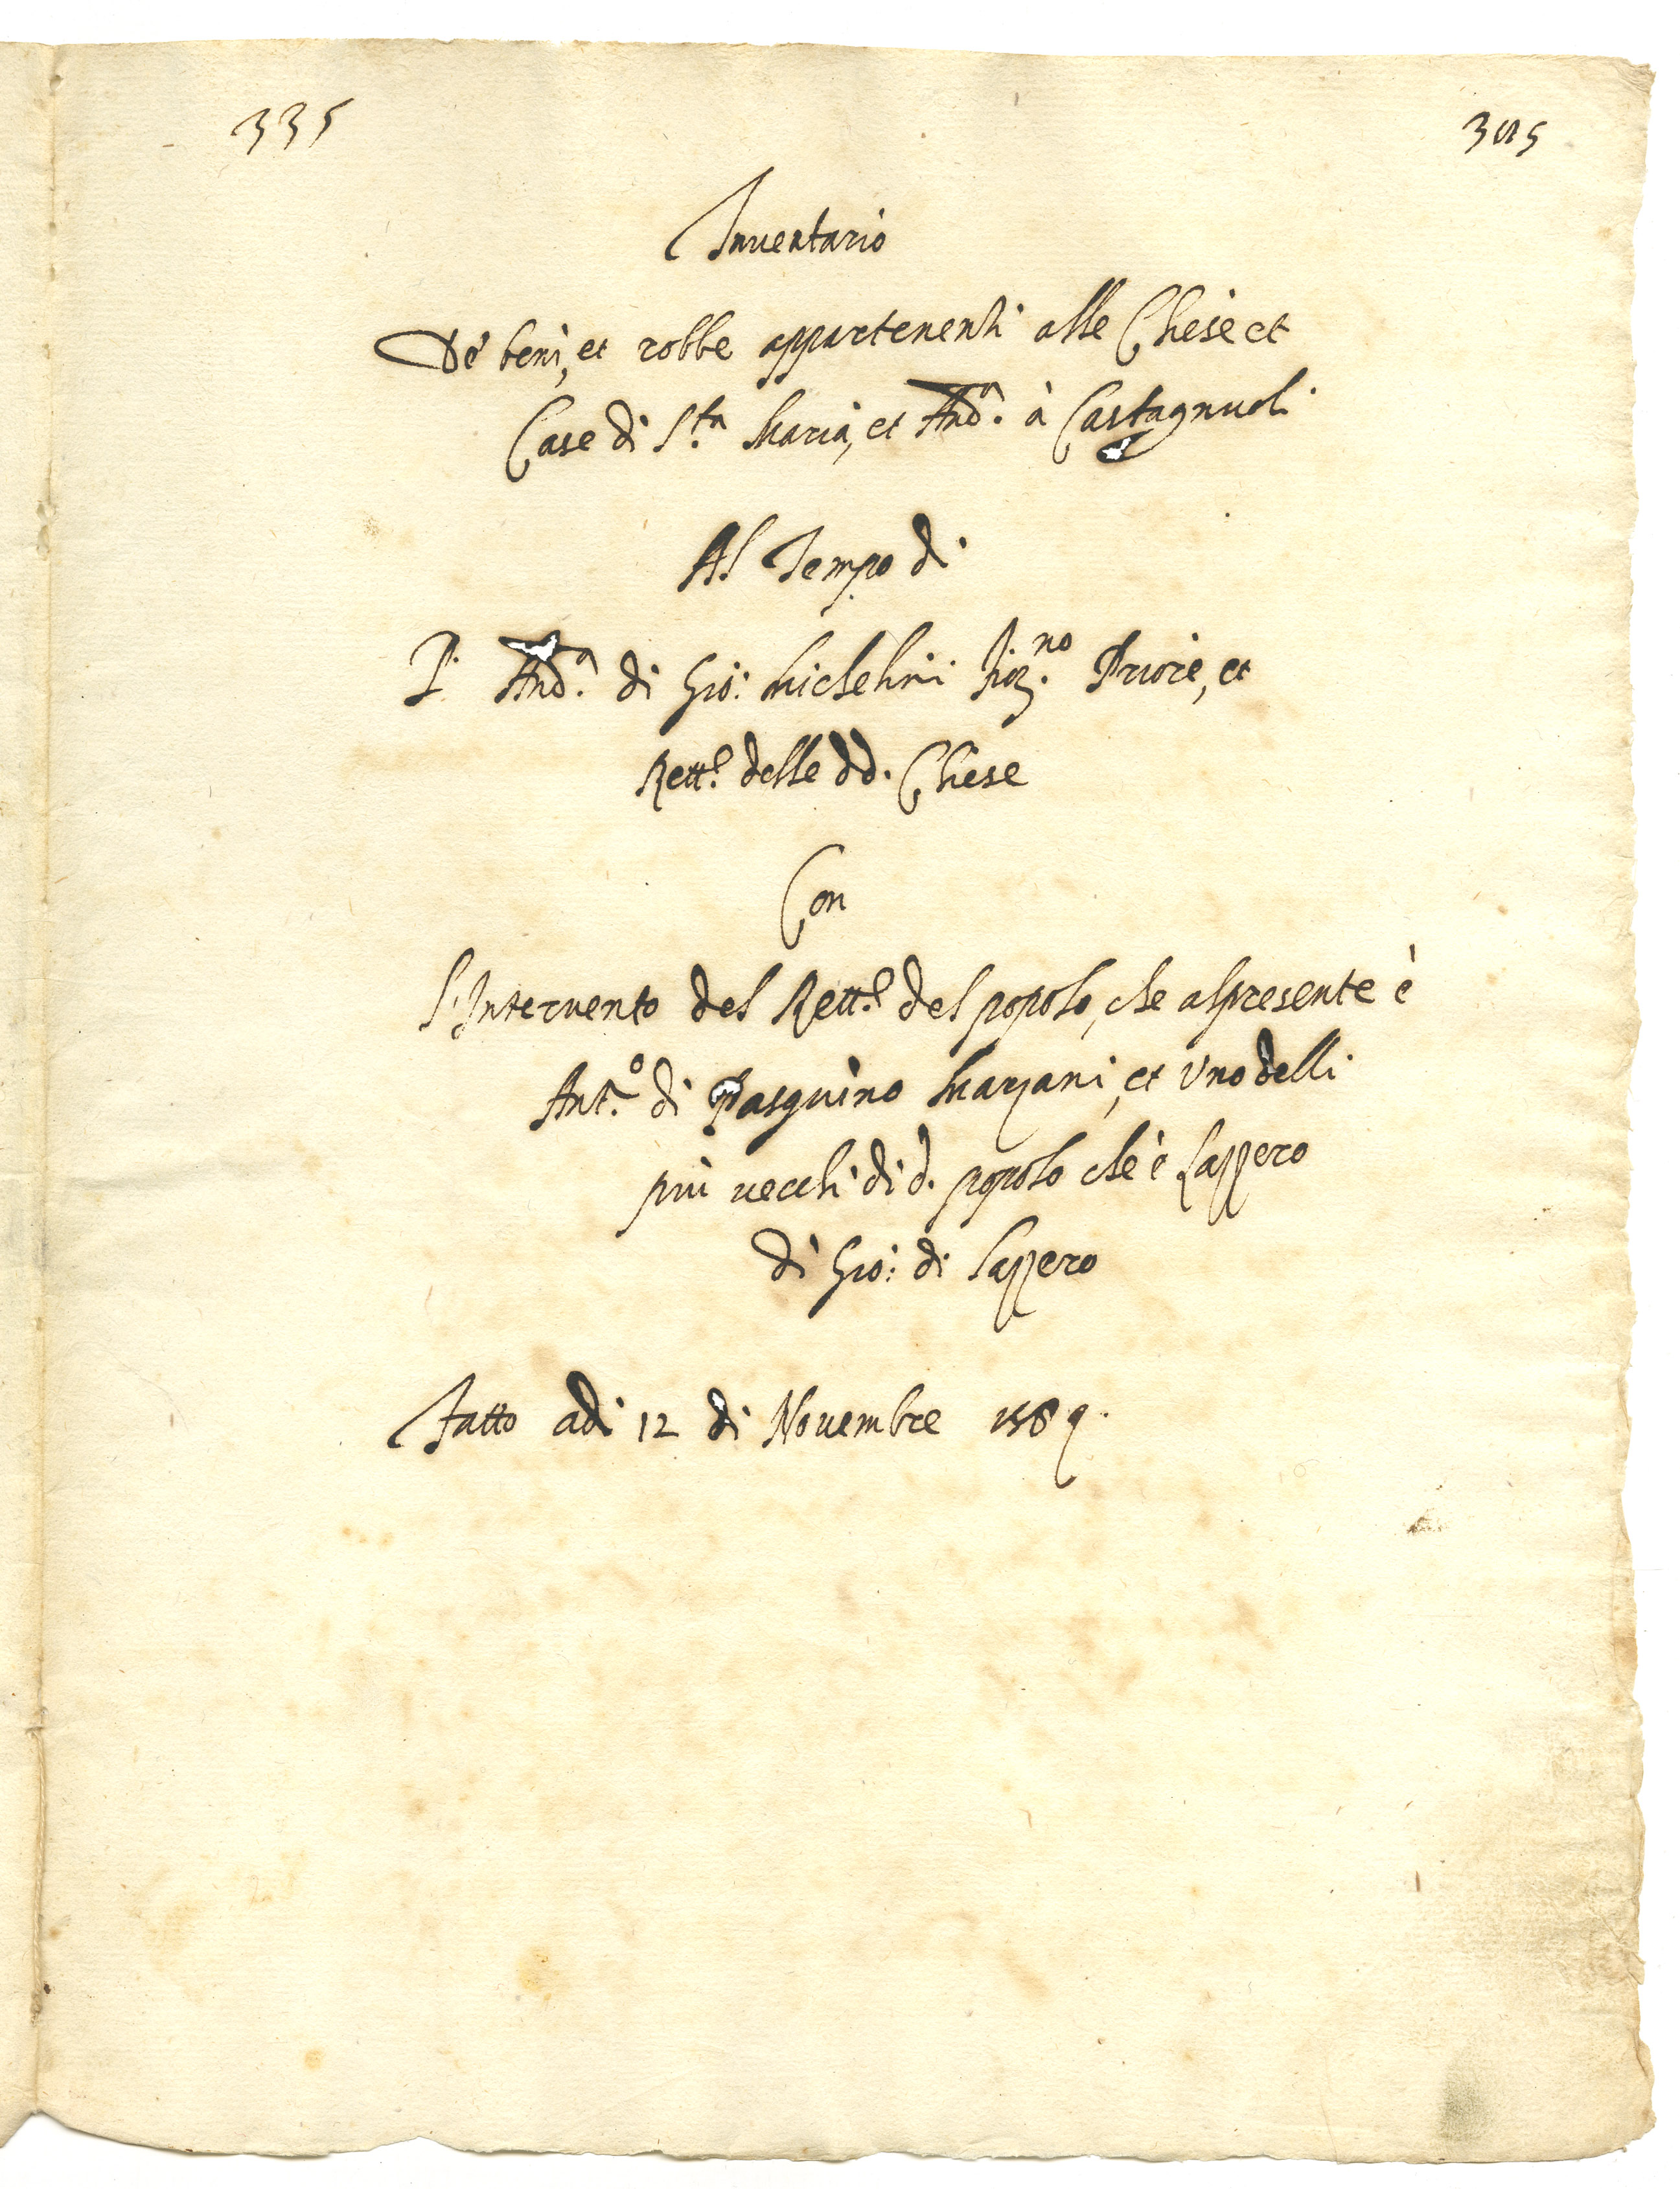 335
305
Inventario
De' beni, et robbe appartenenti alle Chiese et
Case di S.ta Maria, et And.a à Castagnuoli
Al Tempo di
P. And.a di Gio: Michelini Priore, et
Rett.e delle dd. Chiese
Con
l'Intervento del Rett.e del popolo, che al presente è
Ant.o di Pasquino Marzani, et Uno delli
più vecchi di d. popolo che è Lazzero
di Gio: di Lazzero
Fatto adi 12 di Novembre 1589.